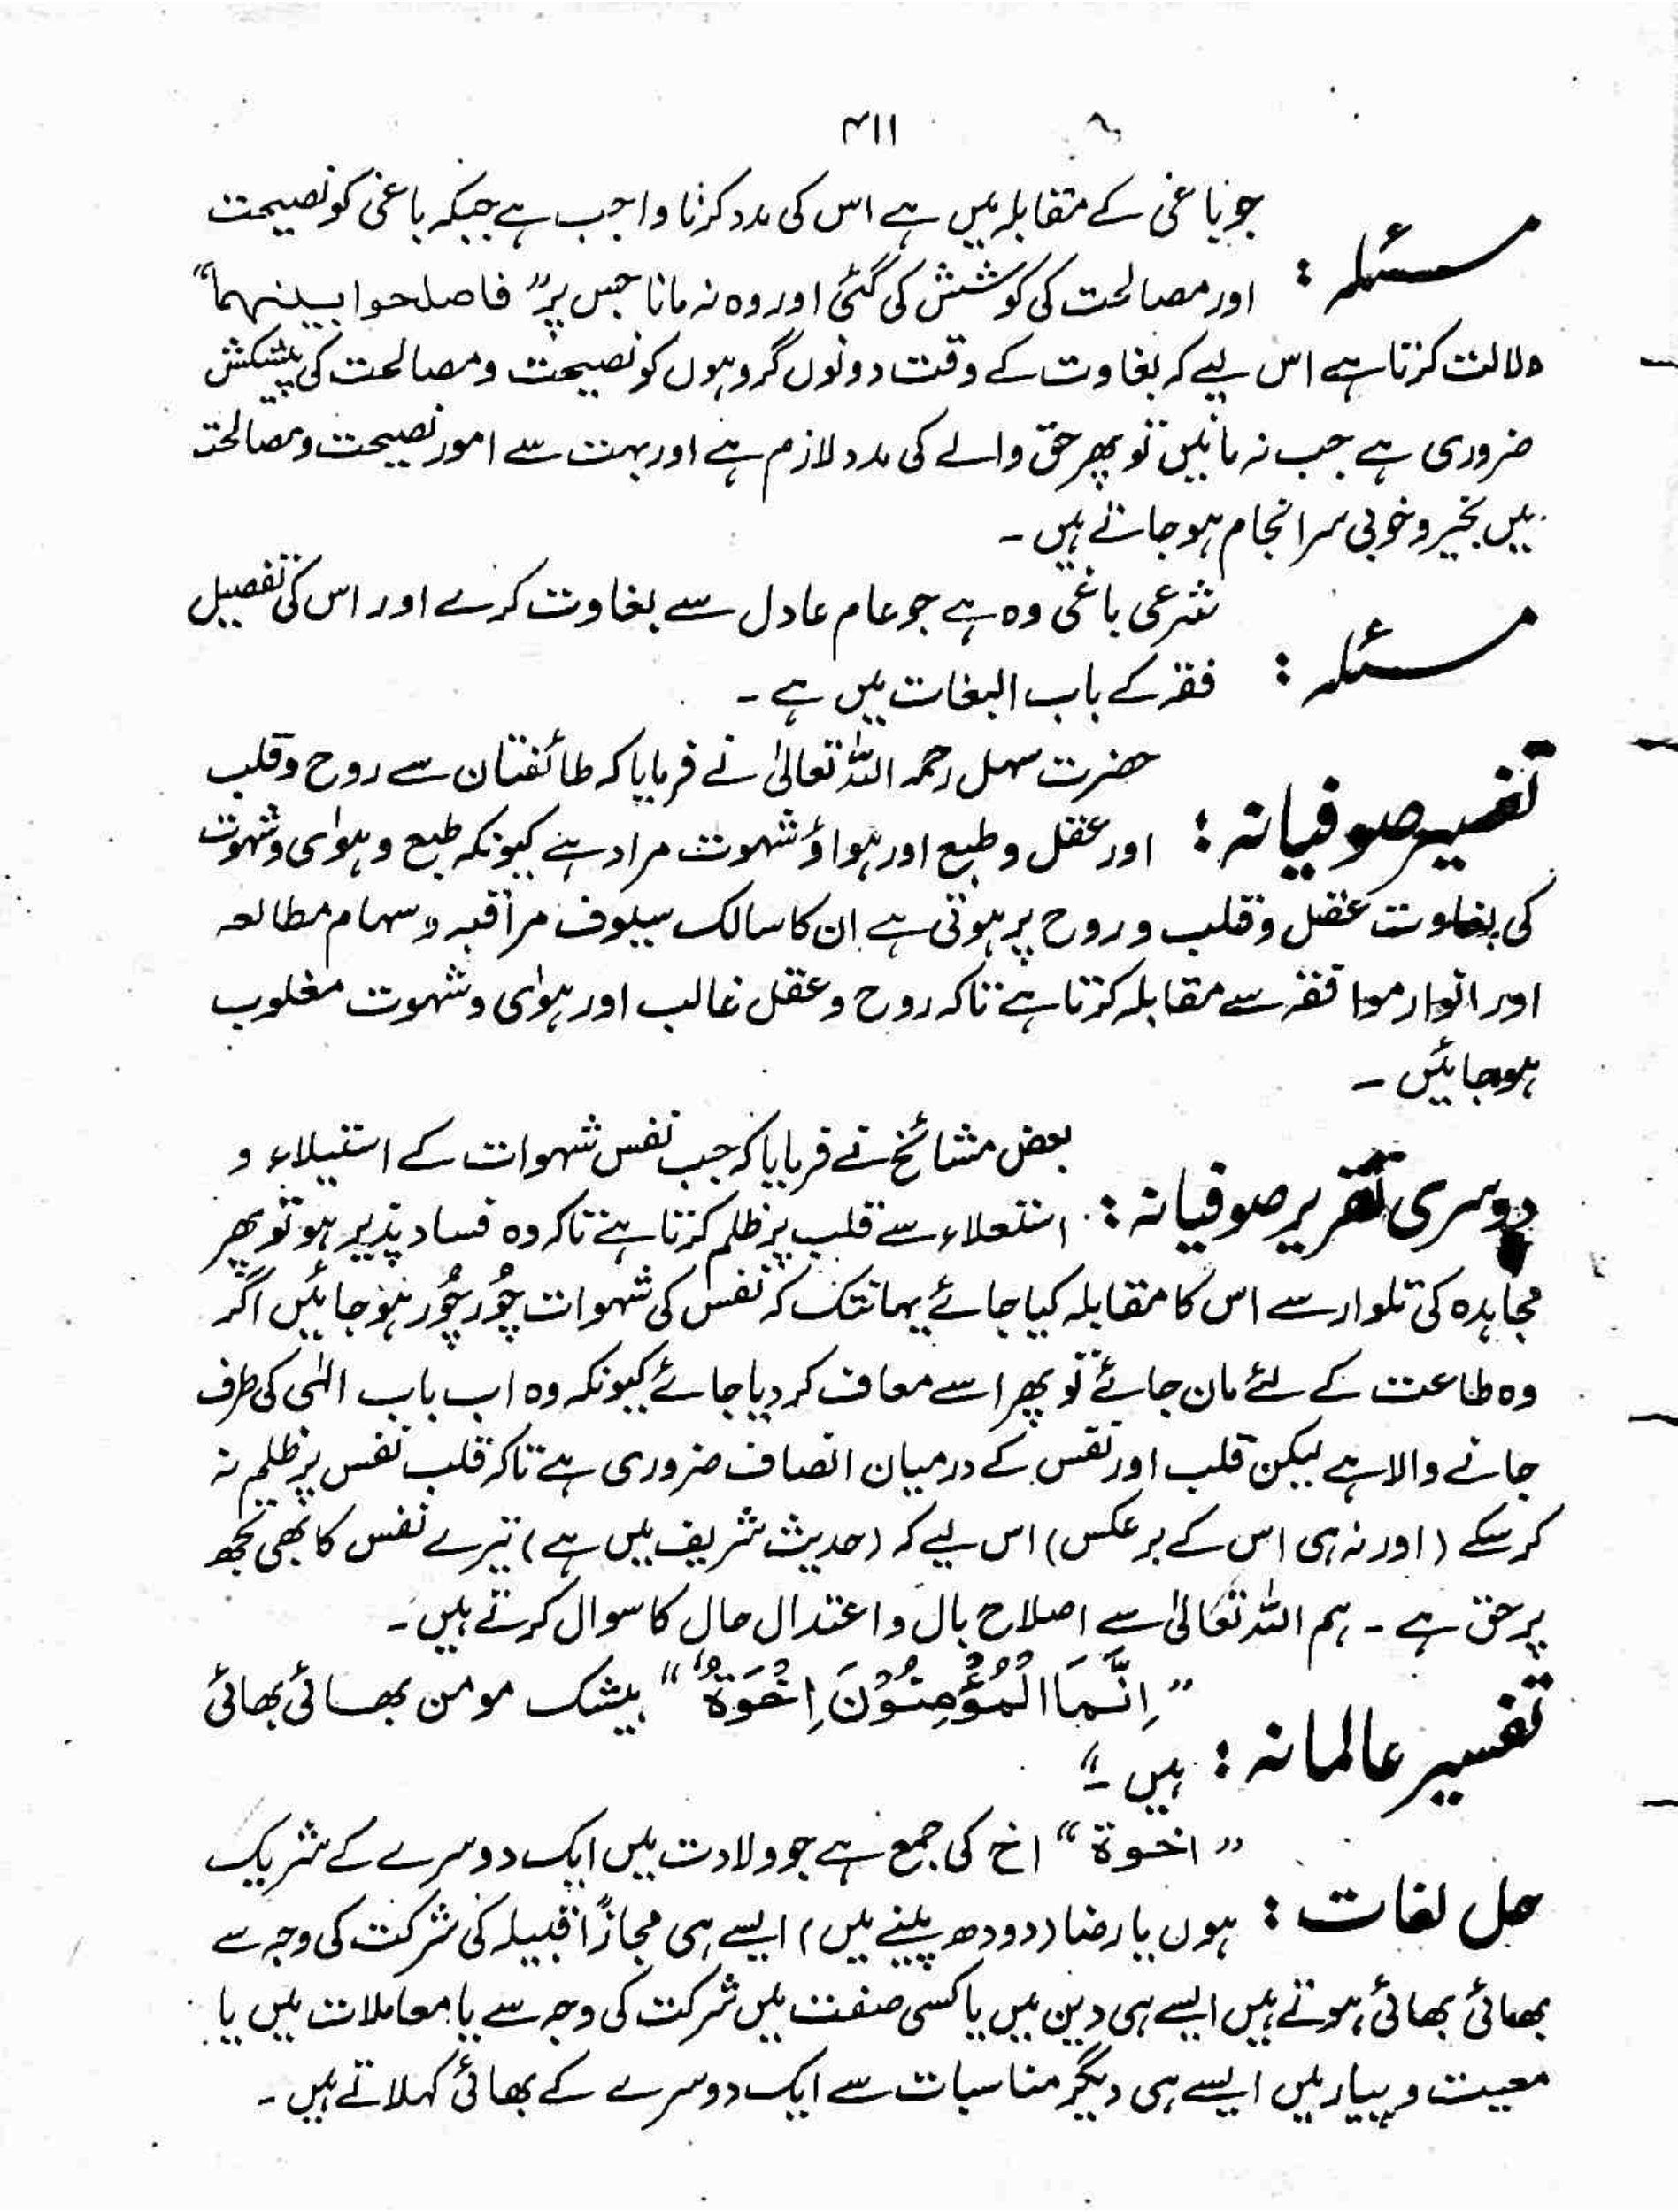 ۴۱۱
مسئلہ : جو باغی کے مقابلہ میں ہے اس کی مدد کرنا واجب ہے جبکہ باغی کو نصیحت
اور مصالحت کی کوشش کی گئی اور وہ نہ مانا جس پر "فاصلحوا بینہما"
دلالت کرتا ہے اس لیے کہ بغاوت کے وقت دونوں گروہوں کو نصیحت و مصالحت کی پیشکش
ضروری ہے جب نہ مانیں تو پھر حق والے کی مدد لازم ہے اور بہت سے امور نصیحت و مصالحت
میں بخیر و خوبی سرانجام ہو جاتے ہیں ۔
مسئلہ : شرعی باغی وہ ہے جو عام عادل سے بغاوت کرے اور اس کی تفصیل
فقہ کے باب البغات میں ہے ۔
تفسیر صوفیانہ : حضرت سہل رحمہ اللہ تعالیٰ نے فرمایا کہ طائفتان سے روح و قلب
اور عقل و طبع اور ہواؤ شہوت مراد ہے کیونکہ طبع و ہوٰی و شہوت
کی بغاوت عقل و قلب و روح پر ہوتی ہے ان کا سالک سیوف مراقبہ و سہام مطالعہ
اور انوار موافقہ سے مقابلہ کرتا ہے تاکہ روح و عقل غالب اور ہوٰی و شہوت مغلوب
ہو جائیں ۔
دوسری تقریر صوفیانہ : بعض مشائخ نے فرمایا کہ جب نفس شہوات کے استیلاء و
استعلاء سے قلب پر ظلم کرتا ہے تاکہ وہ فساد پذیر ہو تو پھر
مجاہدہ کی تلوار سے اس کا مقابلہ کیا جائے یہانتک کہ نفس کی شہوات چُور چُور ہو جائیں اگر
وہ طاعت کے لئے مان جائے تو پھر اسے معاف کر دیا جائے کیونکہ وہ اب باب الٰہی کی طرف
جانے والا ہے لیکن قلب اور نفس کے درمیان انصاف ضروری ہے تاکہ قلب نفس پر ظلم نہ
کر سکے (اور نہ ہی اس کے برعکس) اس لیے کہ (حدیث شریف میں ہے) تیرے نفس کا بھی تجھ
پر حق ہے ۔ ہم اللہ تعالیٰ سے اصلاح بال و اعتدال حال کا سوال کرتے ہیں ۔
تفسیر عالمانہ : "اِنَّمَا الْمُؤْمِنُوْنَ اِخْوَۃٌ" بیشک مومن بھائی بھائی
ہیں ۔"
حل لغات : "اخوۃ" اخ کی جمع ہے جو ولادت میں ایک دوسرے کے شریک
ہوں یا رضا (دودھ پینے میں) ایسے ہی مجازًا قبیلہ کی شرکت کی وجہ سے
بھائی بھائی ہوتے ہیں ایسے ہی دین میں یا کسی صفت میں شرکت کی وجہ سے یا معاملات میں یا
معیت و پیار میں ایسے ہی دیگر مناسبات سے ایک دوسرے کے بھائی کہلاتے ہیں ۔